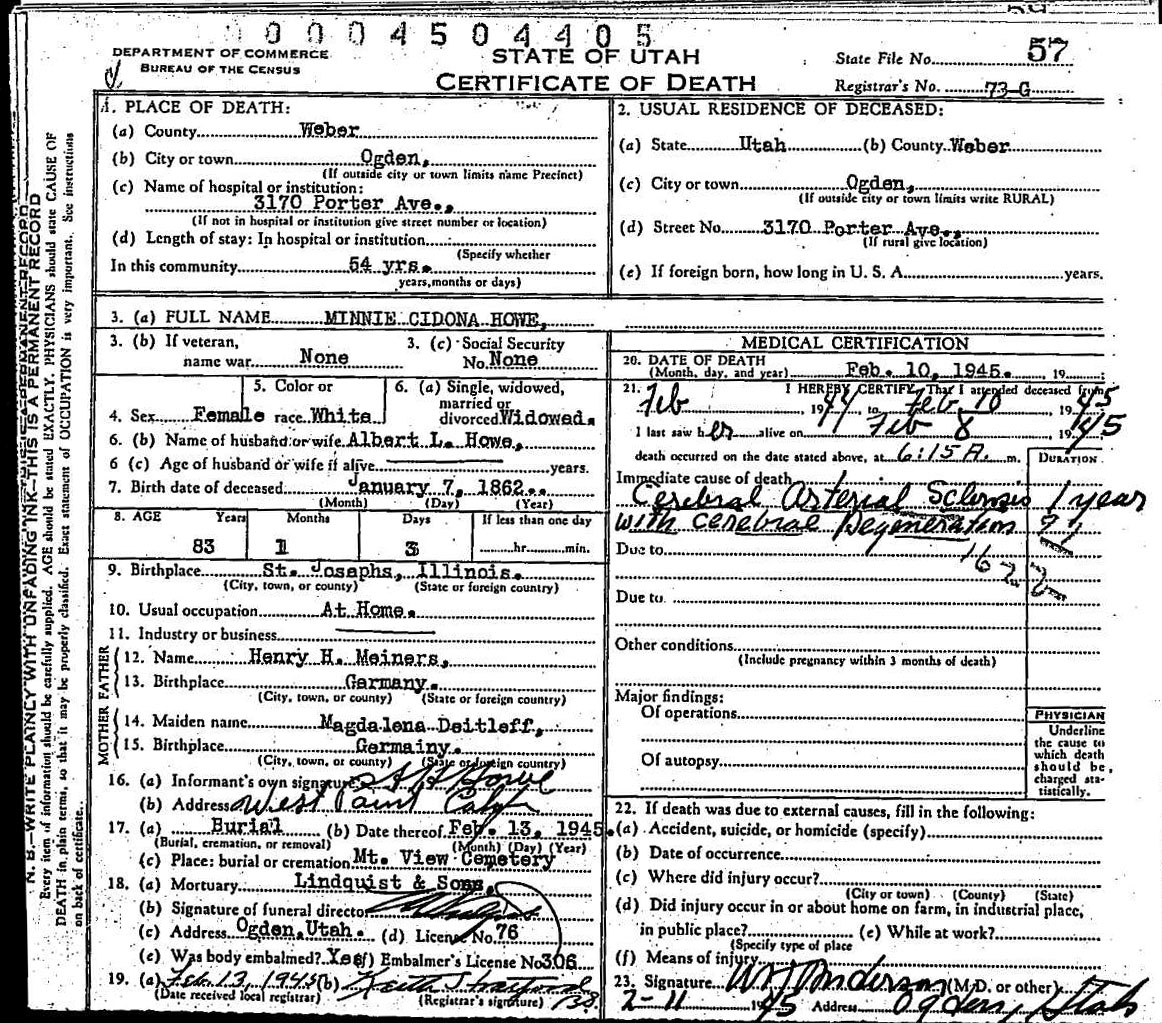 0 0 0 0 4 5 0 4 4 0 5
DEPARTMENT OF COMMERCE
BUREAU OF THE CENSUS
STATE OF UTAH
CERTIFICATE OF DEATH
State File No. 57
Registrar's No. 73-G
1. PLACE OF DEATH:
(a) County Weber
(b) City or town Ogden,
(If outside city or town limits name Precinct)
(c) Name of hospital or institution:
3170 Porter Ave.,
(If not in hospital or institution give street number or location)
(d) Length of stay: In hospital or institution
(Specify whether
In this community 54 yrs.
years, months or days)
2. USUAL RESIDENCE OF DECEASED:
(a) State Utah (b) County Weber
(c) City or town Ogden,
(If outside city or town limits write RURAL)
(d) Street No. 3170 Porter Ave.,
(If rural give location)
(e) If foreign born, how long in U. S. A. years.
3. (a) FULL NAME MINNIE CIDONA HOWE,
3. (b) If veteran,
name war None
3. (c) Social Security
No. None
4. Sex Female
5. Color or
race White
6. (a) Single, widowed,
married or
divorced Widowed.
6. (b) Name of husband or wife Albert L. Howe,
6 (c) Age of husband or wife if alive years.
7. Birth date of deceased January 7, 1862..
(Month) (Day) (Year)
8. AGE Years Months Days If less than one day
83 1 3 hr. min.
9. Birthplace St. Josephs, Illinois.
(City, town, or county) (State or foreign country)
10. Usual occupation At Home.
11. Industry or business
FATHER
12. Name Henry H. Meiners,
13. Birthplace Germany.
(City, town, or county) (State or foreign country)
MOTHER
14. Maiden name Magdalena Deitleff,
15. Birthplace Germainy.
(City, town, or county) (State or foreign country)
16. (a) Informant's own signature Howe
(b) Address West Point
17. (a) Burial (b) Date thereof Feb. 13, 1945.
(Burial, cremation, or removal) (Month) (Day) (Year)
(c) Place: burial or cremation Mt. View Cemetery
18. (a) Mortuary Lindquist & Sons,
(b) Signature of funeral director
(c) Address Ogden, Utah. (d) License No. 76
(e) Was body embalmed? Yes (f) Embalmer's License No 306
19. (a) Feb 13, 1945 (b) Keith
(Date received local registrar) (Registrar's signature)
MEDICAL CERTIFICATION
20. DATE OF DEATH
(Month, day, and year) Feb. 10, 1945. 19
21. I HEREBY CERTIFY That I attended deceased from
Feb , 1944 to Feb 10 , 1945
I last saw her alive on Feb 8 , 1945
death occurred on the date stated above, at 6:15 A. m.
DURATION
Immediate cause of death
Cerebral Arterial Sclerosis 1 year
with cerebral Degeneration
Due to
Due to
Other conditions
(Include pregnancy within 3 months of death)
Major findings:
Of operations
Of autopsy
PHYSICIAN
Underline
the cause to
which death
should be
charged sta-
tistically.
22. If death was due to external causes, fill in the following:
(a) Accident, suicide, or homicide (specify)
(b) Date of occurrence
(c) Where did injury occur?
(City or town) (County) (State)
(d) Did injury occur in or about home on farm, in industrial place,
in public place? (e) While at work?
(Specify type of place
(f) Means of injury
23. Signature Anderson (M.D. or other)
2-11 1945 Address Ogden, Utah
N. B.—WRITE PLAINLY WITH UNFADING INK—THIS IS A PERMANENT RECORD
Every item of information should be carefully supplied. AGE should be stated EXACTLY. PHYSICIANS should state CAUSE OF
DEATH in plain terms, so that it may be properly classified. Exact statement of OCCUPATION is very important. See instructions
on back of certificate.